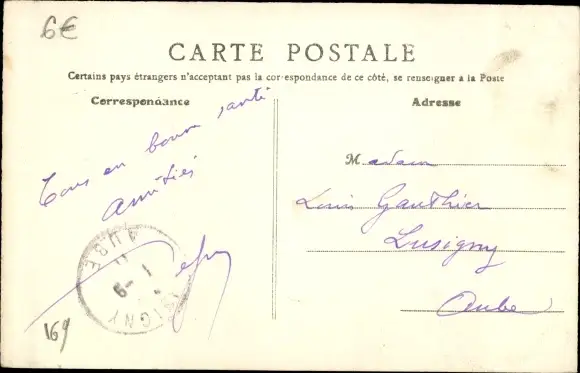 6€
CARTE POSTALE
Certains pays étrangers n'acceptant pas la correspondance de ce côté, se renseigner à la Poste
Correspondance
Adresse
Tous en bonne santé
amitiés
Madam
Louis Gauthier
Lusigny
Aube
AUBE
SIGNY
169